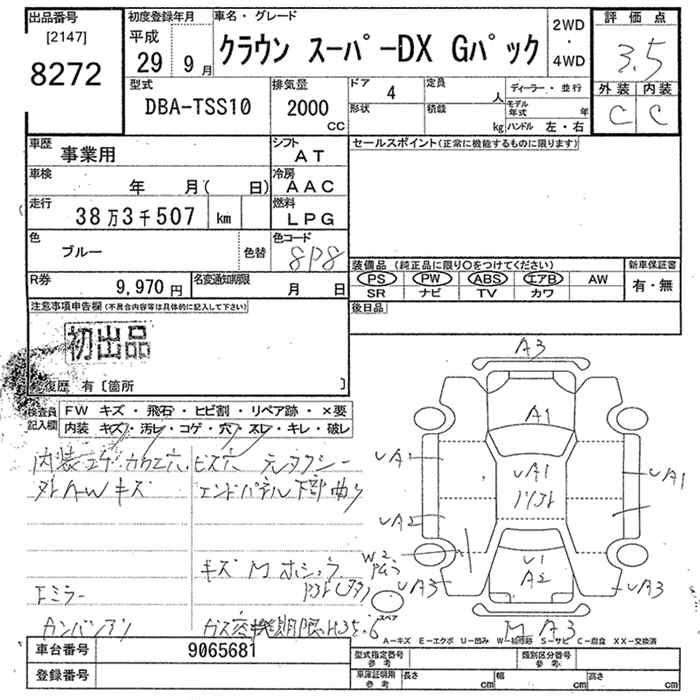 出品番号
[2147]
8272
初度登録年月
平成
29 9月
車名・グレード
クラウン スーパーDX Gパック
2WD
・
4WD
評価点
3.5
外装 内装
C C
型式
DBA-TSS10
排気量
2000
CC
ドア
4
定員
人
形状
積載
kg
ディーラー・並行
モデル年式 年
ハンドル 左・右
車歴
事業用
シフト
AT
セールスポイント(正常に機能するものに限ります)
車検
年 月( 日)
冷房
AAC
走行
38万3千507 km
燃料
LPG
色
ブルー
色替
色コード
8P8
R券
9,970円
名変通知期限
月 日
装備品 (純正品に限り○をつけてください)
PS PW ABS エアB AW
SR ナビ TV カワ
新車保証書
有・無
後日品
注意事項申告欄(不具合内容等は具体的に記入して下さい)
初出品
修復歴 有〔箇所 〕
検査員記入欄
FW キズ・飛石・ヒビ割・リペア跡・×要
内装 キズ・汚レ・コゲ・穴・スレ・キレ・破レ
内装コゲ カワエ穴 ビス穴 元タクシー
外AWキズ エンドパネル下部曲り
キズM ホショウ
Fミラー
ガス容検期限H35.6
A3
A1
UA1
UA1
UA1
UA2
W2
U1
A2
UA3
UA3
MA3
スペア
A-キズ E-エクボ U-凹み W-補修跡 S-サビ C-腐食 XX-交換済
車台番号
9065681
登録番号
型式指定番号
参考
類別区分番号
参考
車庫証明用
参考
長さ cm
幅 cm
高さ cm